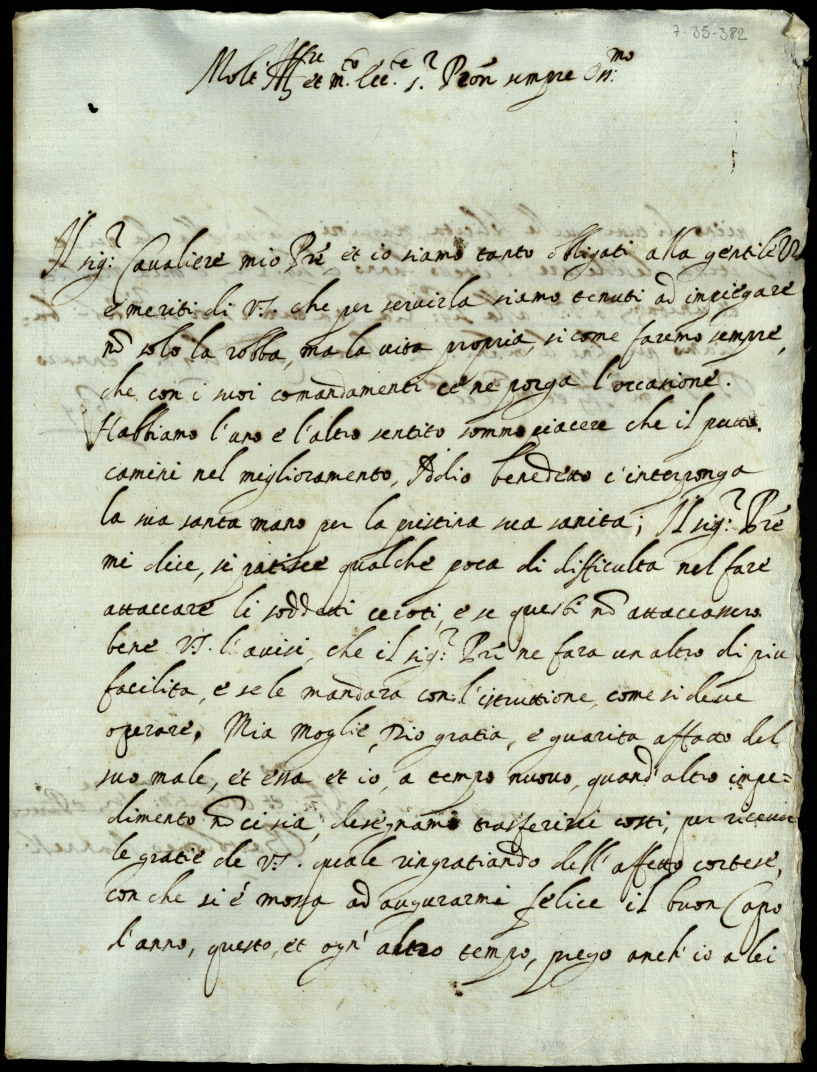 7-35-382
Molt' Ill.re et m.to Ecc.te s.r Pron sempre Oss.mo
Il sig.r Cavaliere mio Pre, et io siamo tanto obligati alla gentilezza
e meriti di V.S. che per servirla siamo tenuti ad impiegare
nõ solo la robba, ma la vita propria, si come faremo sempre,
che con i suoi comandamenti ce ne porga l'occasione.
Habbiamo l'uno e l'altro sentito sommo piacere che il putto
camini nel miglioramento, Iddio benedetto c'interponga
la sua santa mano per la pristina sua sanita; Il sig.r Pre
mi dice, si patisce qualche poca di difficulta nel fare
attaccare li soddetti ceroti, e se questi nõ attaccassero
bene V.S. l'avisi, che il sig.r Pre ne fara un altro di piu
facilita, e se le mandara con l'istruttione, come si deve
operare. Mia moglie, Dio gratia, e guarita affatto del
suo male, et essa et io, a tempo nuovo, quand'altro impe=
dimento nõ ci sia, desegnamo trasferirci costi, per ricevir
le gratie de V.S. quale ringratiando dell'affetto cortese,
con che si é mossa ad augurarmi felice il buon Capo
d'anno, questo, et ogn' altro tempo, prego anch'io a lei